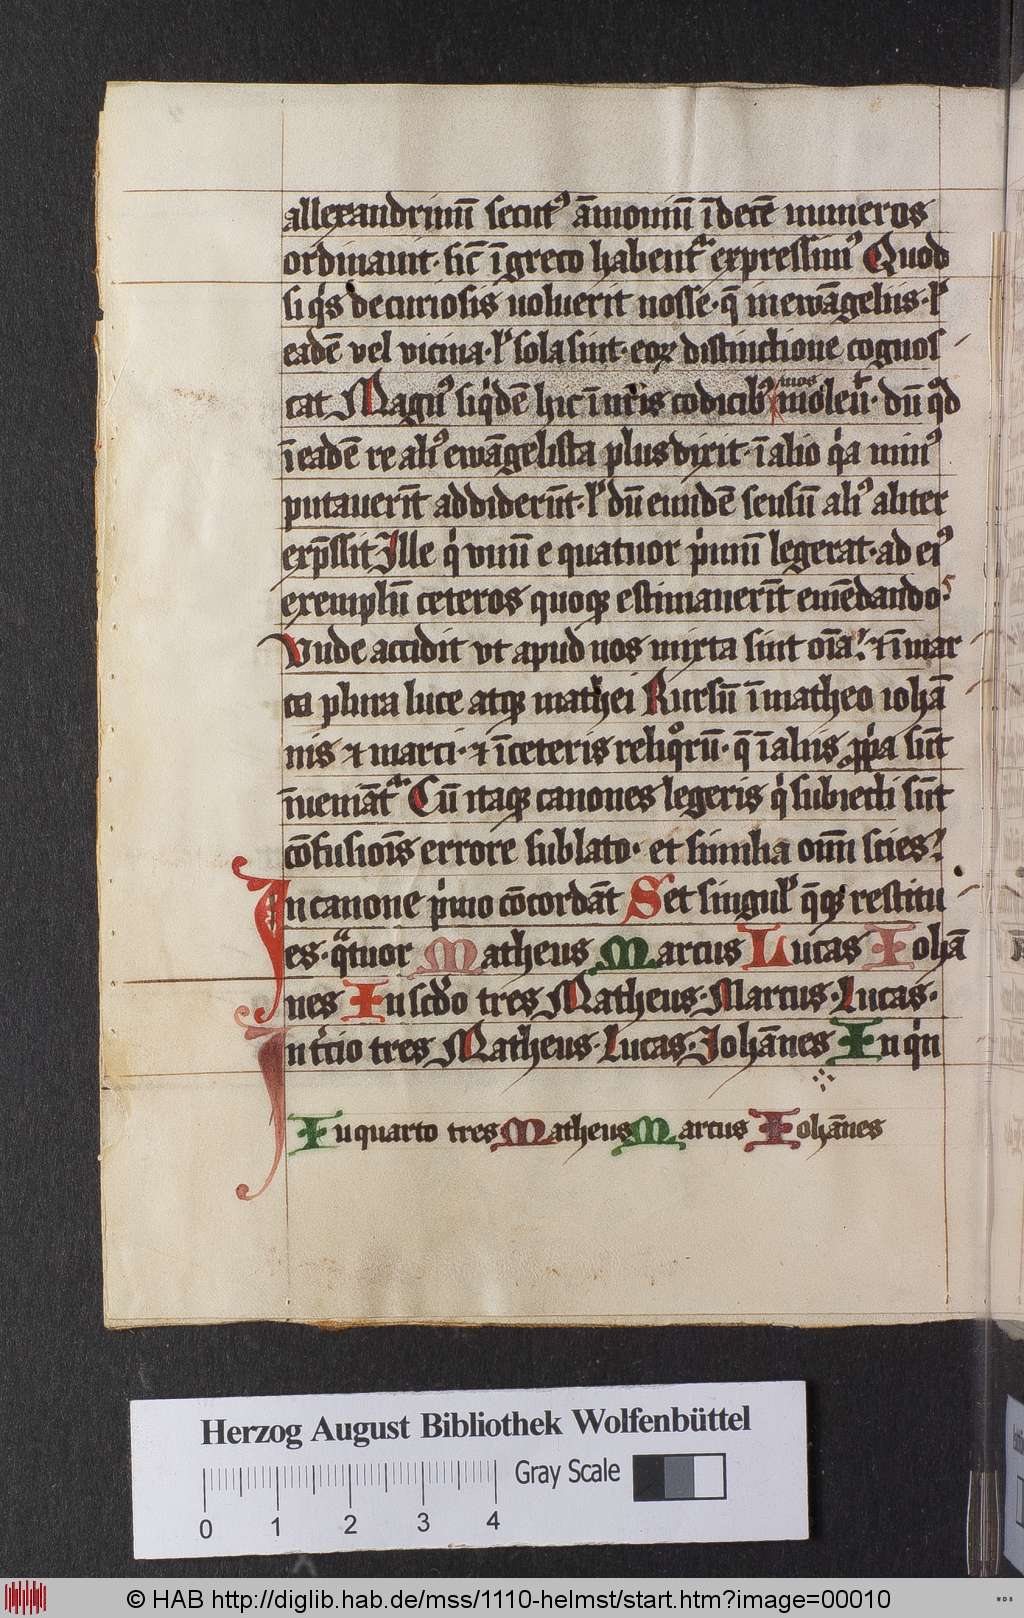 allexandrinū secutꝰ āmoniū ī decē numeros
ordinauit· sic̄ ī greco habent᷑ expressimꝰ Quod
si qͥs de curiosis uoluerit nosse· q̄ in ewāgeliis· ł
eadē vel vicina· ł sola sint· eoꝝ distinctione cognos
cat Magnꝰ siqͥdē hic ī nr̄is codicibꝰ
inoleuͭ· dū qͦd
ī eadē re aliꝰ ewāgelista plus dixit· ī alio qͥa minꝰ
putauerīt addiderūt· ł dū eundē sensū aliꝰ aliter
exp̄ssit Ille qͥ vnū e quatuor pͥmū legerat· ad eiꝰ
exemplū ceteros quoqꝫ estimauerīt emēdando·
Vnde accidit vt apud nos mixta sint oīa· ⁊ ī mar
co plura luce atqꝫ mathei Rursū ī matheo iohā
nis ⁊ marci· ⁊ ī ceteris reliqͦrū· q̄ ī aliis ꝓpͥa sūt
īueniāt᷑ Cū itaqꝫ canones legeris qͥ subiecti sūt
cōfusiōis errore sublato· et similia oīm scies·
In canone pͥmo cōcordāt Set singuł q̄qꝫ restitu
es· qͣtuor Matheus Marcus Lucas Iohā
nes In scd̄o tres Matheus· Marcus· Lucas·
In tͥcio tres Matheus· Lucas· Johānes In qͥn
In quarto tres Matheus Marcus Iohānes
Herzog August Bibliothek Wolfenbüttel
Gray Scale
0 1 2 3 4
© HAB http://diglib.hab.de/mss/1110-helmst/start.htm?image=00010